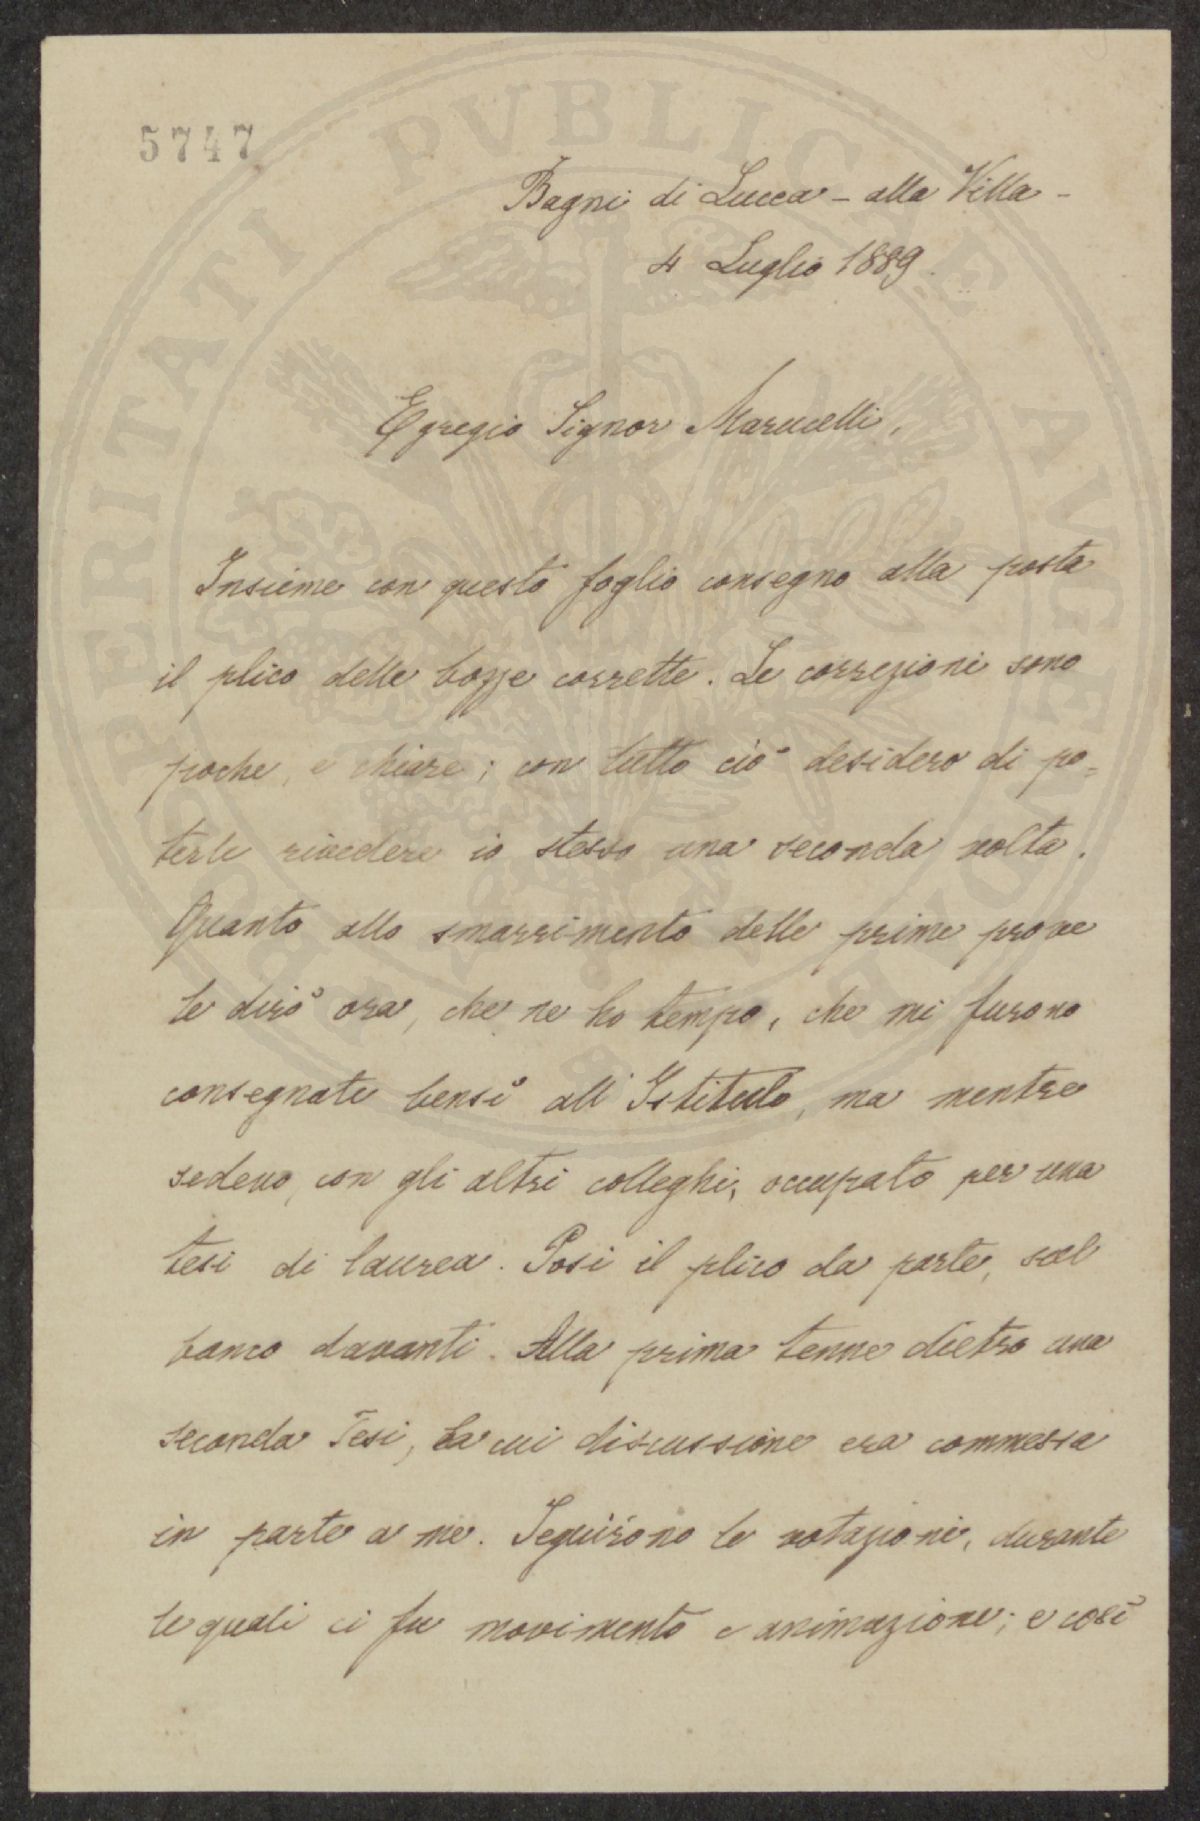 5747
Bagni di Lucca - alla Villa -
4 Luglio 1889.
Egregio Signor Marucelli,
Insieme con questo foglio consegno alla posta
il plico delle bozze corrette. Le correzioni sono
poche, e chiare; con tutto ciò desidero di po=
terle rivedere io stesso una seconda volta.
Quanto allo smarrimento delle prime prove
le dirò ora, che ne ho tempo, che mi furono
consegnate bensì all'Istituto, ma mentre
sedevo, con gli altri colleghi, occupato per una
tesi di laurea. Posi il plico da parte, sul
banco davanti. Alla prima tenne dietro una
seconda Tesi, la cui discussione era commessa
in parte a me. Seguirono le votazioni, durante
le quali ci fu movimento e animazione; e così
PROSPERITATI PVBLICAE AVGENDAE